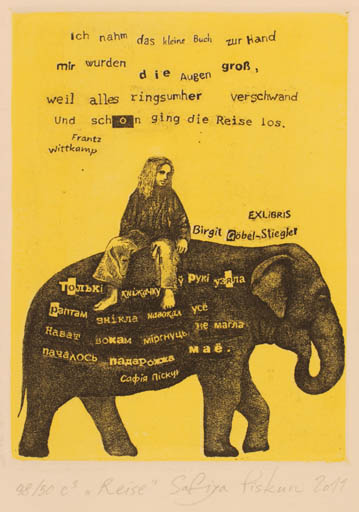 ich nahm das kleine Buch zur Hand
mir wurden die Augen groß,
weil alles ringsumher verschwand
Und schon ging die Reise los.
Frantz
Wittkamp
EXLIBRIS
Birgit Göbel-Stiegler
толькі кніжачку ў рукі узяла
раптам знікла навокал усё
Нават вокам міргнуць не магла
пачалось падарожжа маё.
Сафія Піскун
98/50 c³ „Reise" Safiya Piskun 2011